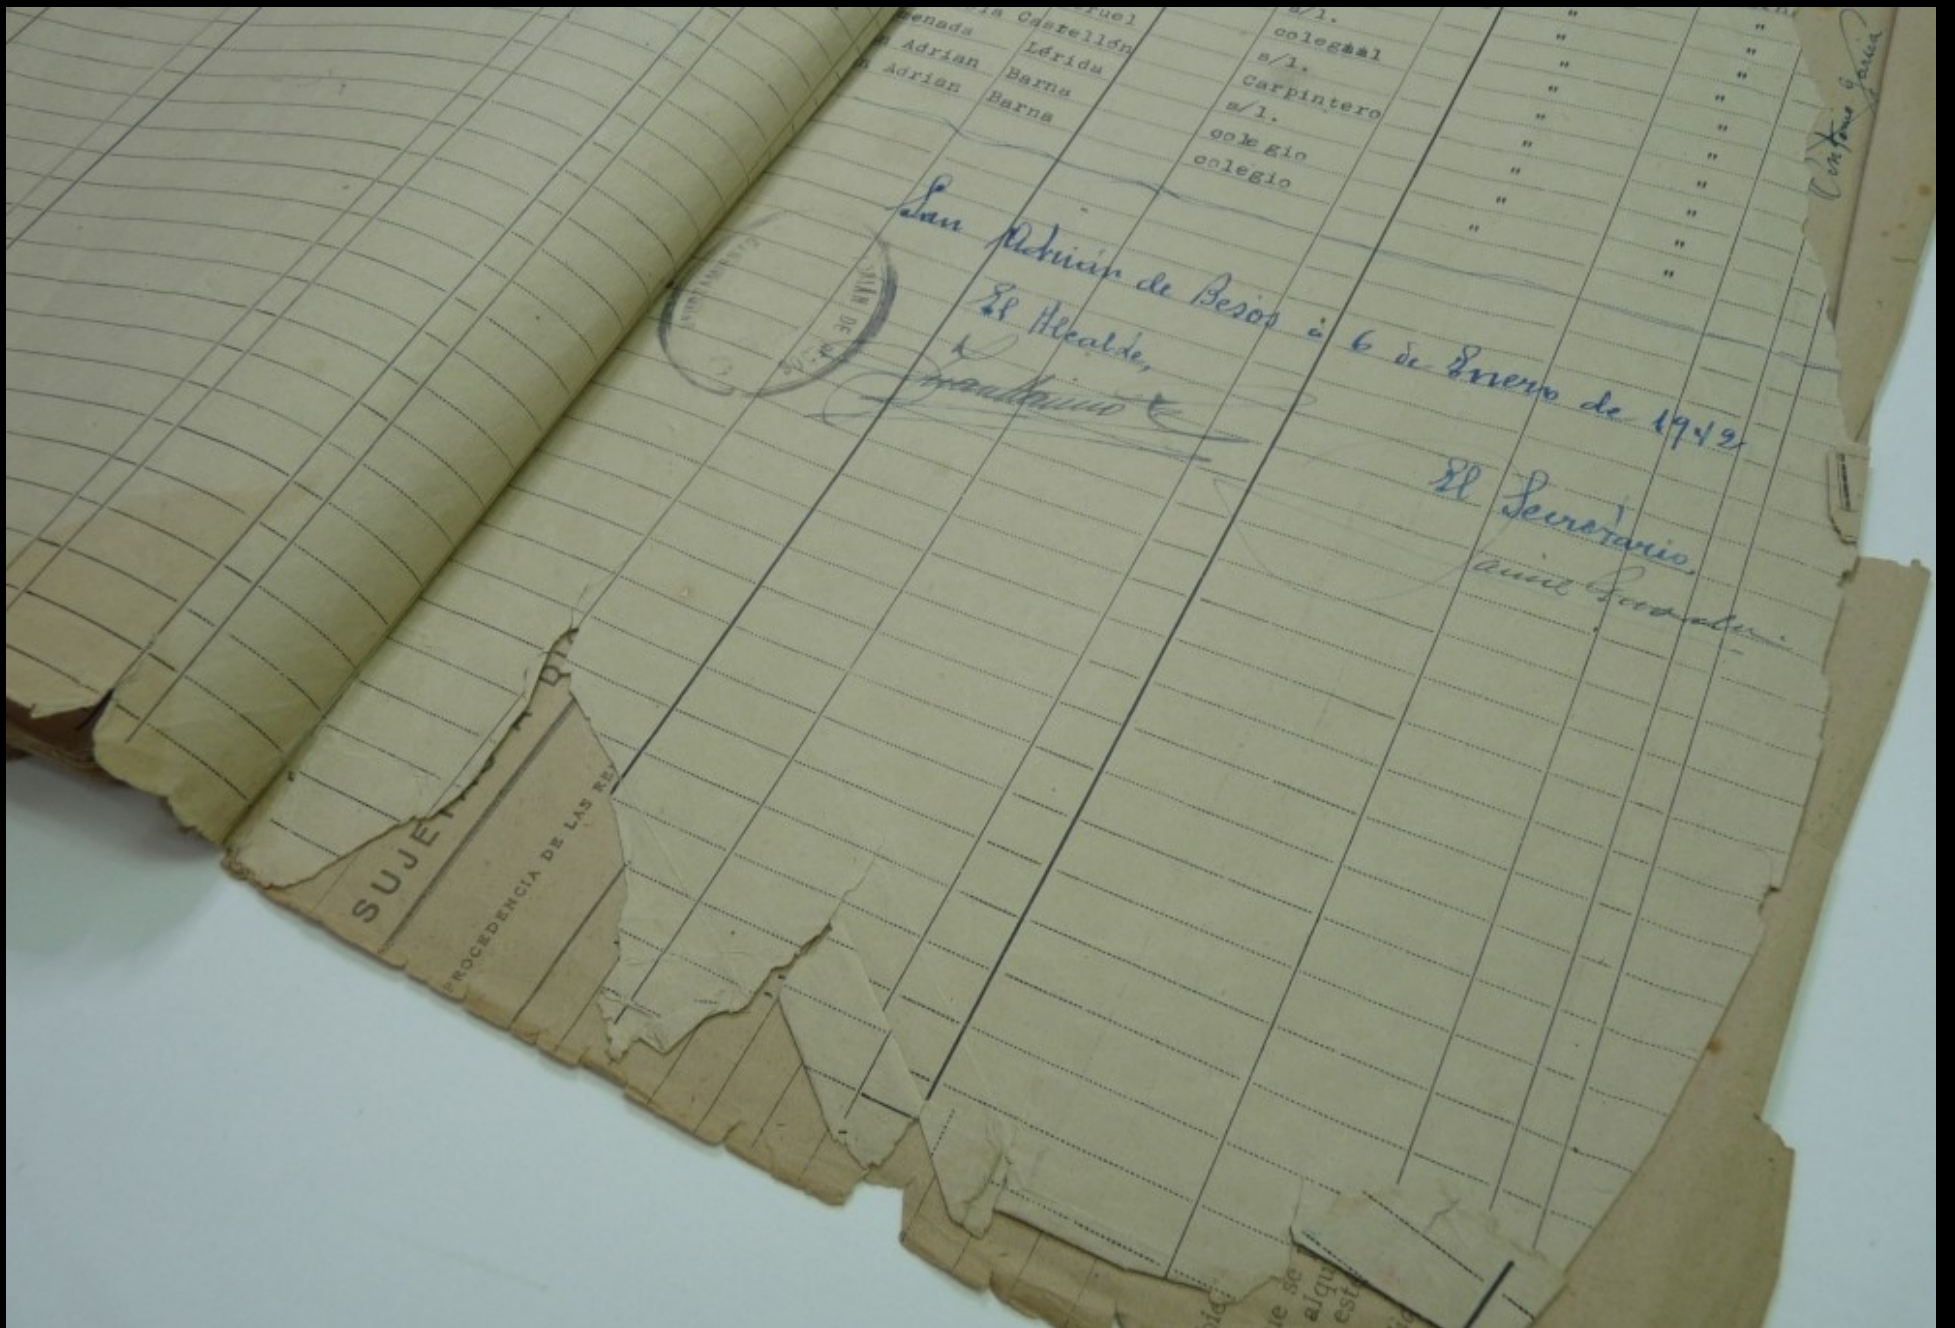 Castellón
Lérida
Adrian Barna
Adrian Barna
s/l.
colegial
s/l.
Carpintero
s/l.
colegio
colegio
San Adrián de Besós á 6 de Enero de 1942
El Alcalde,
El Secretario,
Jaime
Antonio García
AYUNTAMIENTO
DE
SUJE
PROCEDENCIA DE LAS RE
ue se
alqu
est